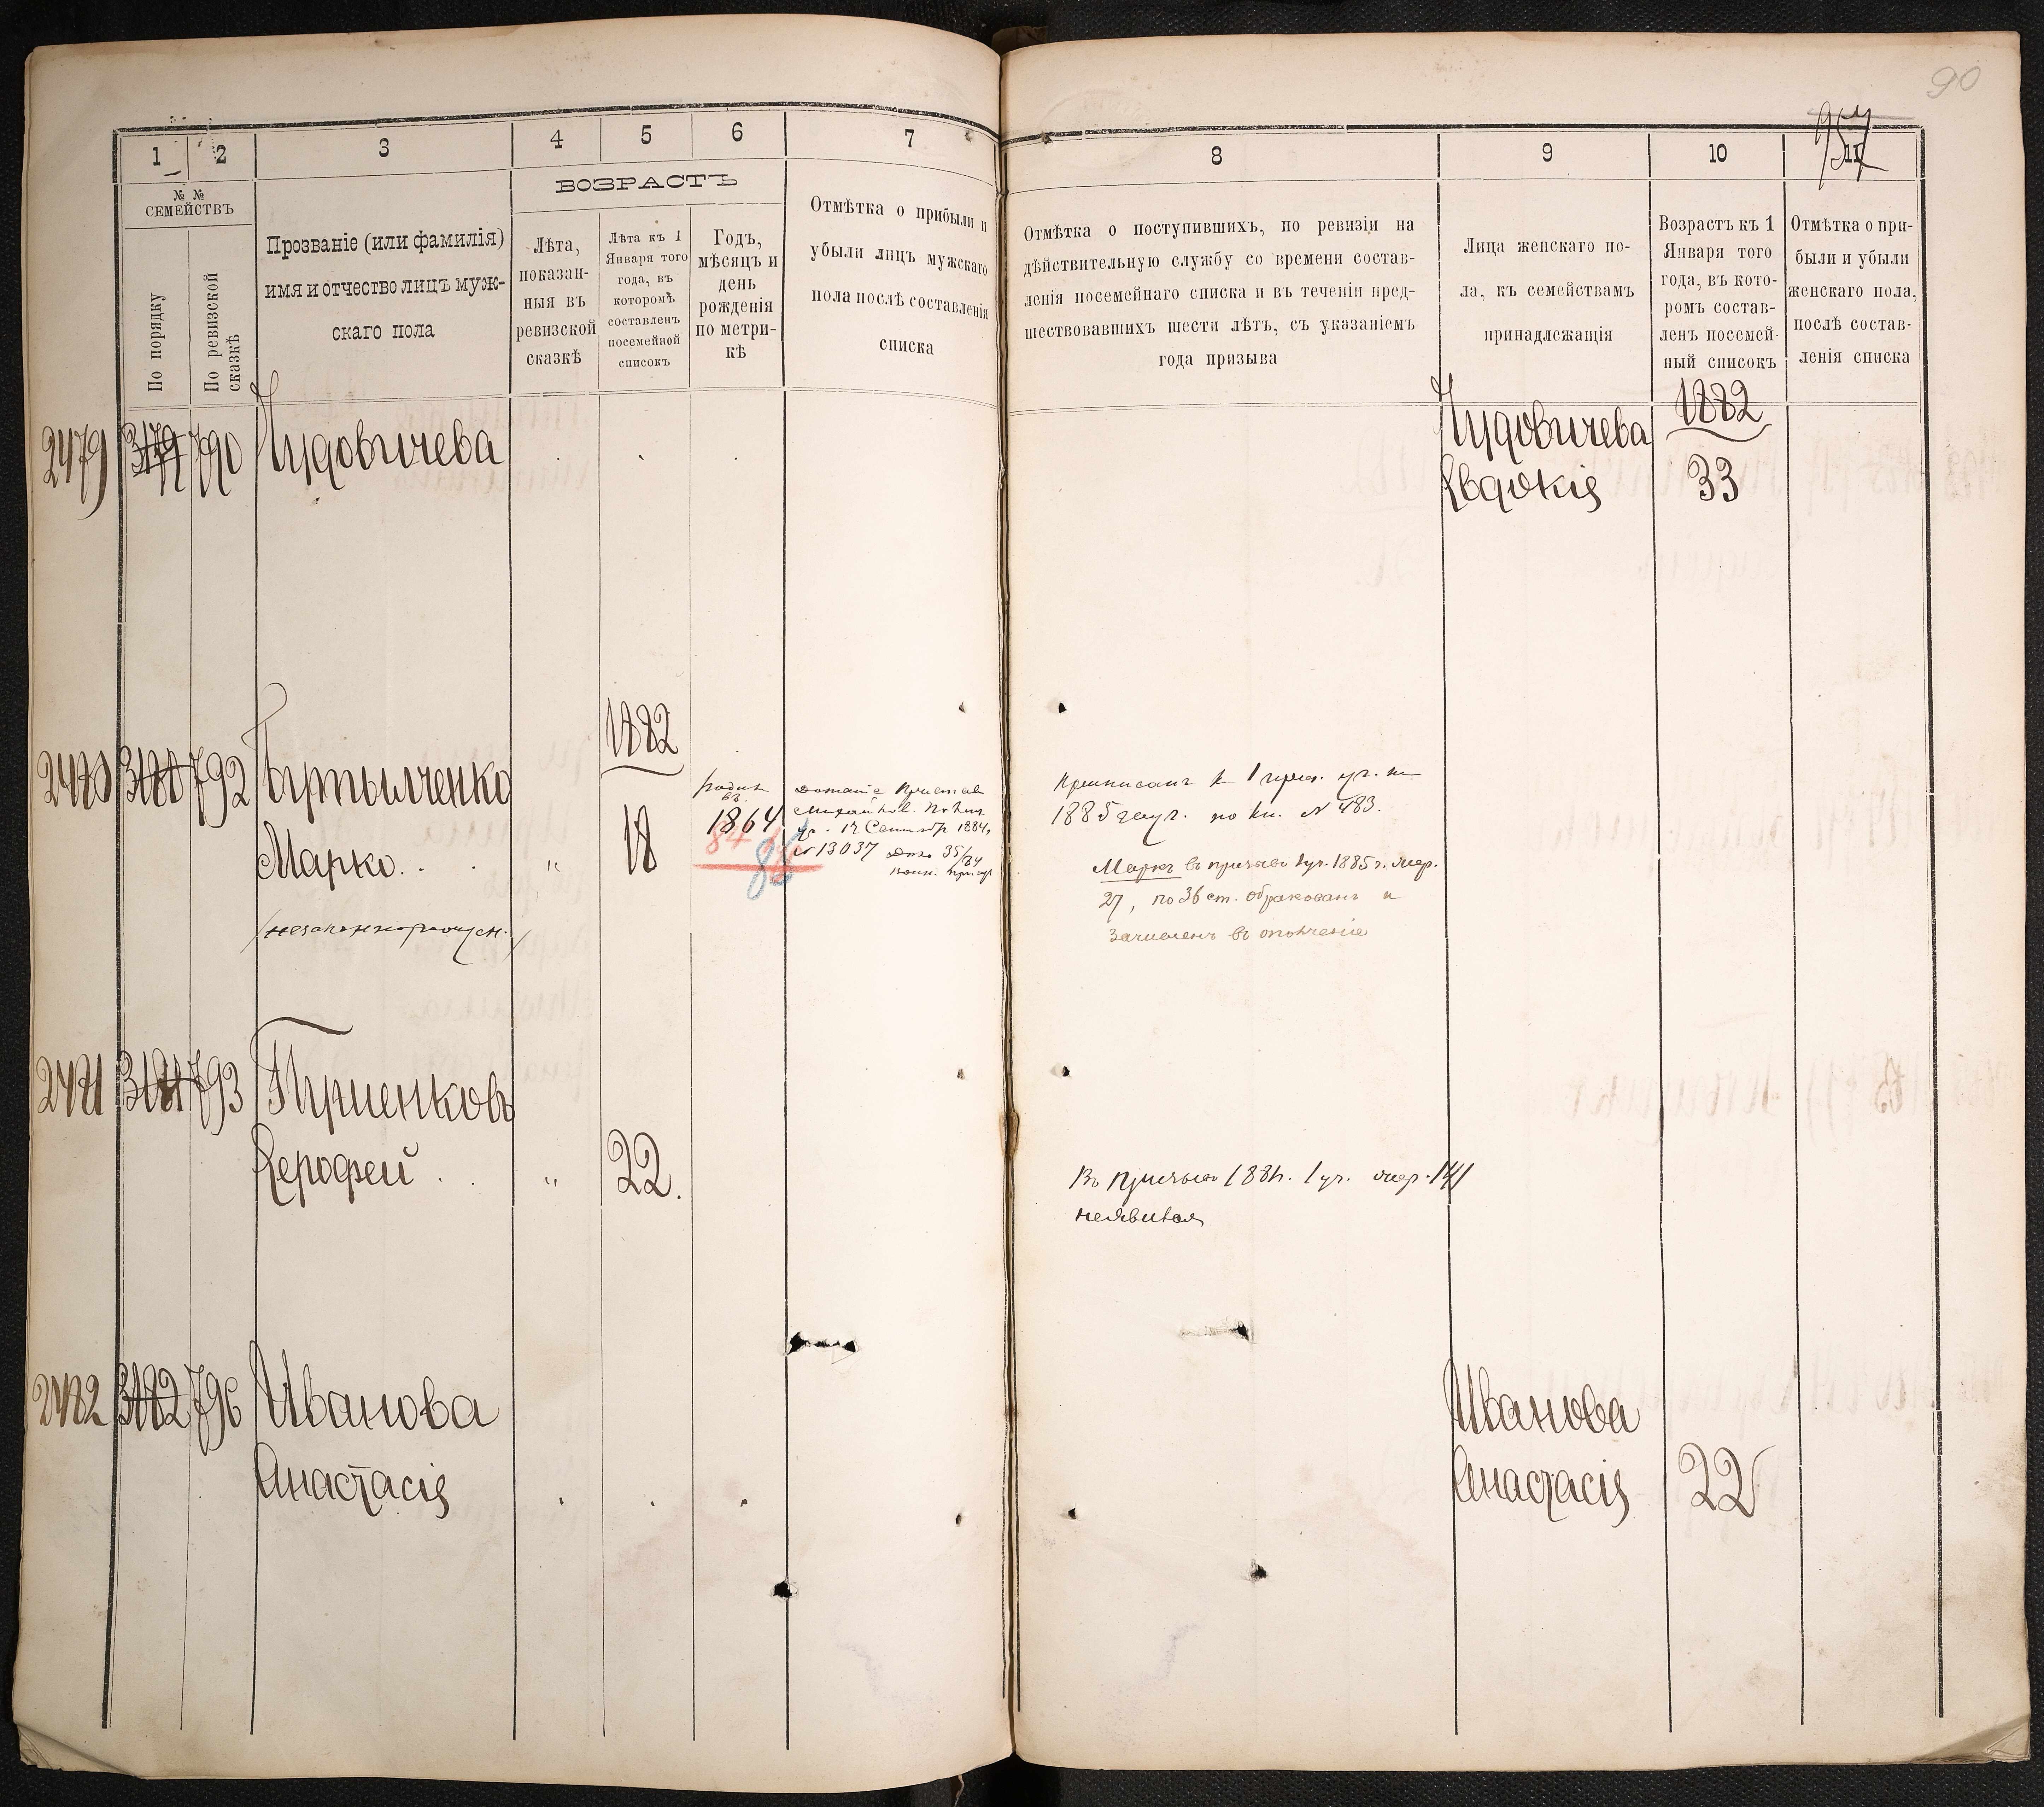 90
957
1 2 3 4 5 6 7
№ № СЕМЕЙСТВЪ
По порядку
По ревизской сказкѣ
Прозваніе (или фамилія)
имя и отчество лицъ муж-
скаго пола
ВОЗРАСТЪ
Лѣта,
показан-
ныя въ
ревизской
сказкѣ
Лѣта къ 1
Января того
года, въ
которомъ
составленъ
посемейной
списокъ
Годъ,
мѣсяцъ и
день
рожденія
по метри-
кѣ
Отмѣтка о прибыли и
убыли лицъ мужскаго
пола послѣ составленія
списка
8 9 10 11
Отмѣтка о поступившихъ, по ревизіи на
дѣйствительную службу со времени состав-
ленія посемейнаго списка и въ теченіи пред-
шествовавшихъ шести лѣтъ, съ указаніемъ
года призыва
Лица женскаго по-
ла, къ семействамъ
принадлежащія
Возрастъ къ 1
Января того
года, въ кото-
ромъ состав-
ленъ посемей-
ный списокъ
Отмѣтка о при-
были и убыли
женскаго пола,
послѣ состав-
ленія списка
2479 3179 790 Чудовичева
Чудовичева 1882
Евдокія 33
1882
2480 3180 792
Марко 18
/незаконнорожден./
родил.
въ
1864
84
86
12 Сентябр 1884
№ 13037
Приписанъ къ 1 приз. уч. по
1885 году. по кн. № 483.
Марко въ призывъ 1 уч. 1885 г. жер.
27, по 36 ст. обракованъ и
зачисленъ въ ополченіе
2481 3181 793 Гуриенковъ
Ерофей 22.
Въ призывъ 1881 г. 1 уч. жер. 141
неявился
2482 3182 796 Иванова
Анастасія
Иванова
Анастасія 22